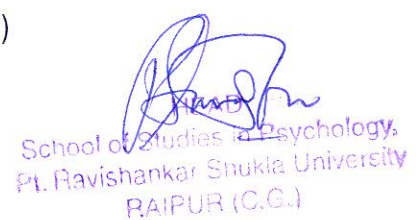 )
HEAD
School of Studies in Psychology,
Pt. Ravishankar Shukla University
RAIPUR (C.G.)